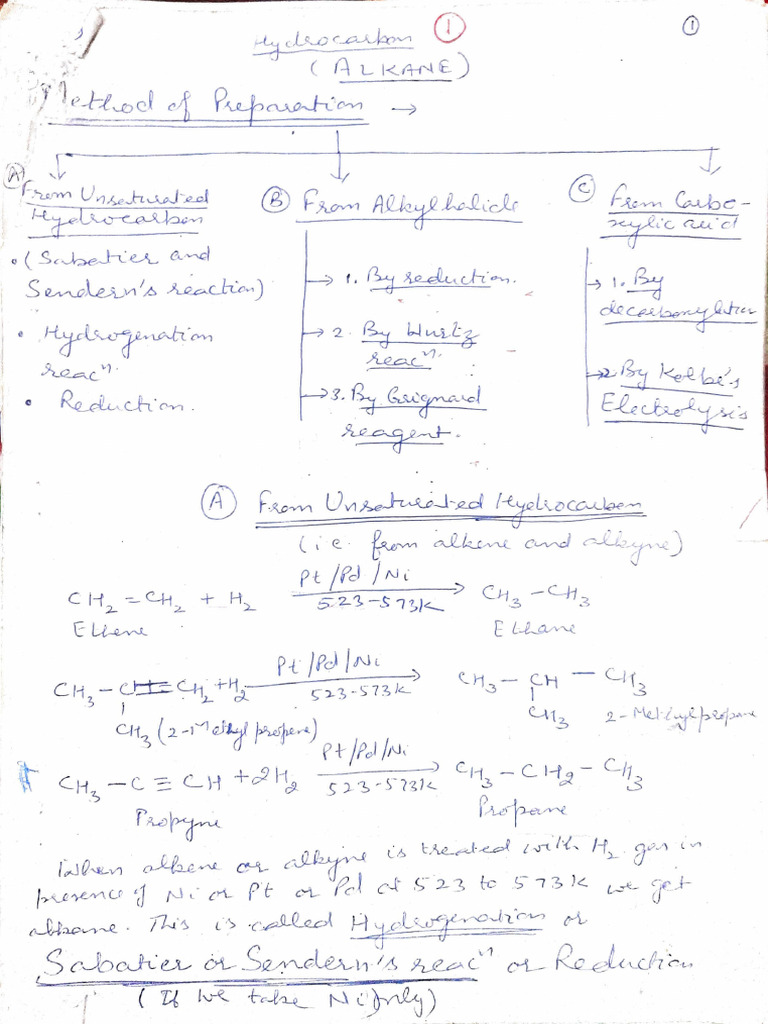 Hydrocarbon ①
①
(ALKANE)
Method of Preparation →
Ⓐ From Unsaturated
Hydrocarbon
• (Sabatier and
Sendern's reaction)
• Hydrogenation
reacⁿ.
• Reduction.
Ⓑ From Alkylhalide
→ 1. By reduction.
→ 2. By Wurtz
reacⁿ.
→ 3. By Grignard
reagent.
Ⓒ From Carbo-
xylic acid
→ 1. By
decarboxylation
→ 2. By Kolbe's
Electrolysis
Ⓐ From Unsaturated Hydrocarbon
(i.e. from alkene and alkyne)
Pt/Pd/Ni
CH₂=CH₂ + H₂ → CH₃-CH₃
523-573K
Ethene Ethane
Pt/Pd/Ni
CH₃-C=CH₂+H₂ → CH₃-CH-CH₃
523-573K
CH₃ (2-Methyl propene) CH₃ 2-Methylpropane
Pt/Pd/Ni
CH₃-C≡CH+2H₂ → CH₃-CH₂-CH₃
523-573K
Propyne Propane
When alkene or alkyne is treated with H₂ gas in
presence of Ni or Pt or Pd at 523 to 573K we get
alkane. This is called Hydrogenation or
Sabatier or Sendern's reacⁿ or Reduction
(If we take Ni only)